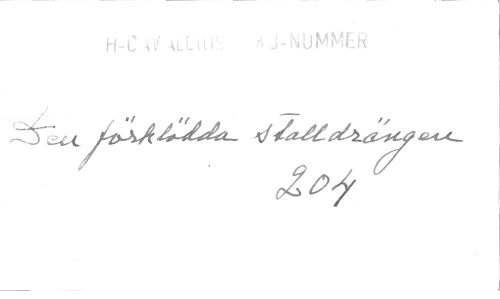 H-CAVALLIUS KB-NUMMER
Den förklädda stalldrängen
204